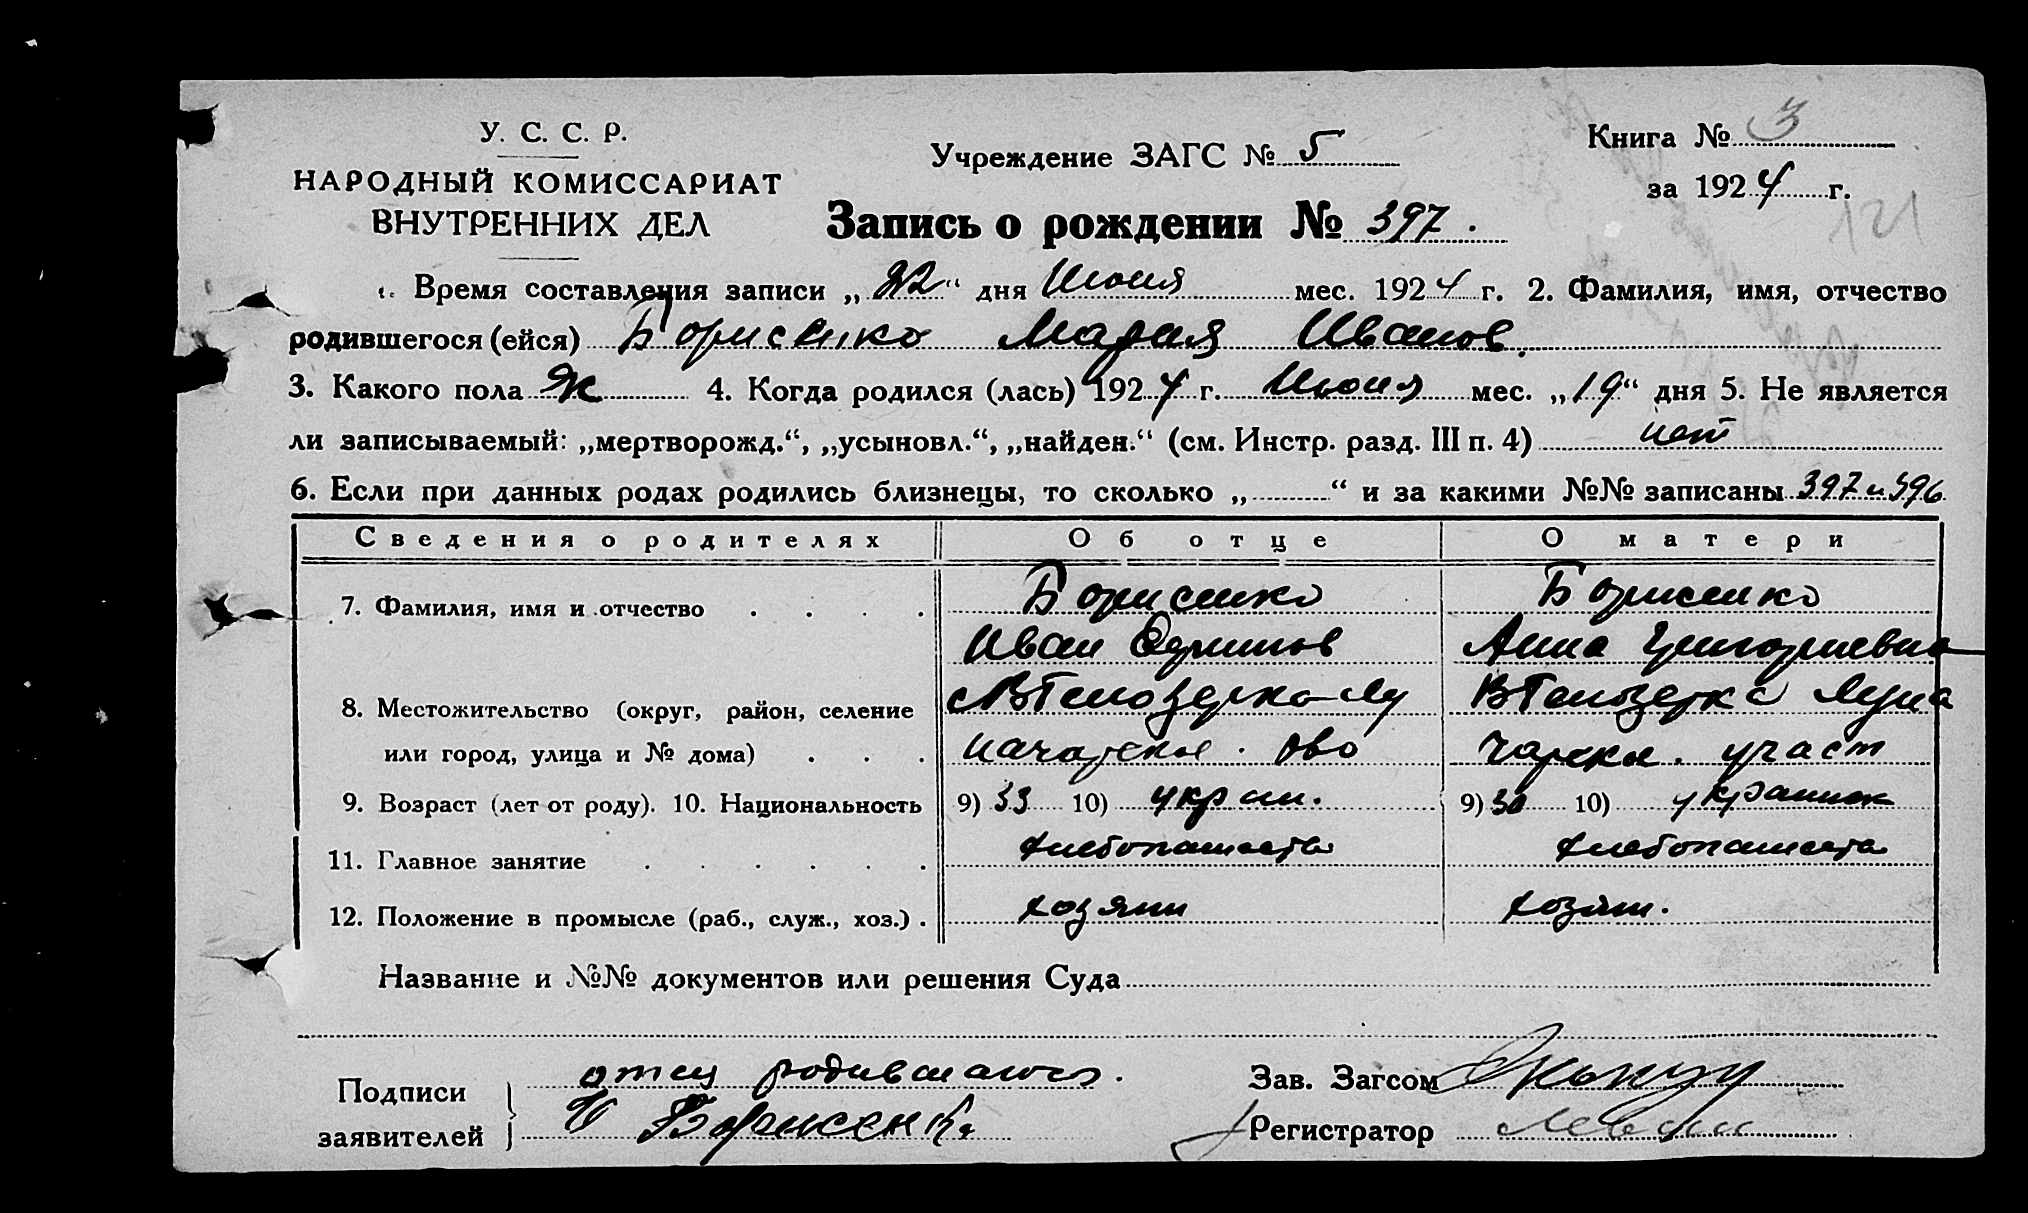 У. С. С. Р.
НАРОДНЫЙ КОМИССАРИАТ
ВНУТРЕННИХ ДЕЛ
Учреждение ЗАГС № 5
Книга № 3
за 1924 г.
121
Запись о рождении № 397.
1. Время составления записи „22“ дня Июня мес. 1924 г. 2. Фамилия, имя, отчество
родившегося (ейся) Борисенко Мария Иванов.
3. Какого пола Ж 4. Когда родился (лась) 1924 г. Июня мес. „19“ дня 5. Не является
ли записываемый: „мертворожд.“, „усыновл.“, „найден.“ (см. Инстр. разд. III п. 4) нет
6. Если при данных родах родились близнецы, то сколько „ “ и за какими №№ записаны 397 и 396
Сведения о родителях Об отце О матери
7. Фамилия, имя и отчество . . . . Борисенко Борисенко
Иван Анна Григориевна
8. Местожительство (округ, район, селение
или город, улица и № дома) . . . участ
9. Возраст (лет от роду). 10. Национальность 9) 33 10) укр 9) 30 10)
11. Главное занятие . . . . . . хлебопашество хлебопашество
12. Положение в промысле (раб., служ., хоз.) . хозяин хозяин.
Название и №№ документов или решения Суда
Подписи заявителей отец родившагося.
И Борисенко
Зав. Загсом
Регистратор